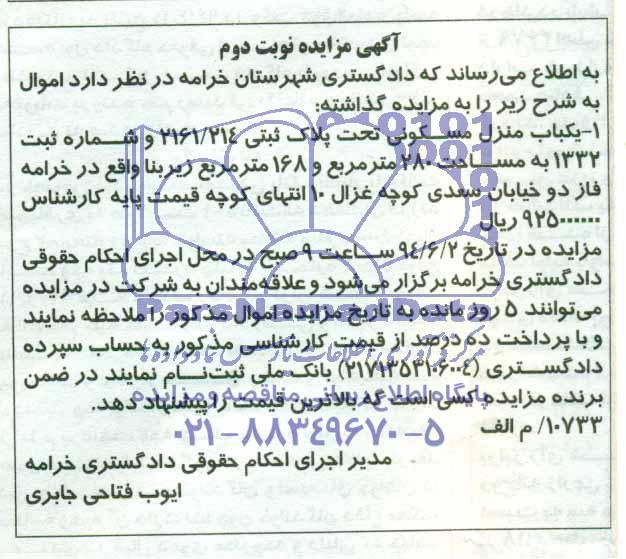 آگهی مزایده نوبت دوم
به اطلاع می‌رساند که دادگستری شهرستان خرامه در نظر دارد اموال
به شرح زیر را به مزایده گذاشته:
۱-یکباب منزل مسکونی تحت پلاک ثبتی ۲۱۶۱/۲۱۴ و شماره ثبت
۱۳۳۲ به مساحت ۲۸۰ مترمربع و ۱۶۸ مترمربع زیربنا واقع در خرامه
فاز دو خیابان سعدی کوچه غزال ۱۰ انتهای کوچه قیمت پایه کارشناس
۹۲۵۰۰۰۰۰۰ ریال
مزایده در تاریخ ۹۴/۶/۲ ساعت ۹ صبح در محل اجرای احکام حقوقی
دادگستری خرامه برگزار می‌شود و علاقه‌مندان به شرکت در مزایده
می‌توانند ۵ روز مانده به تاریخ مزایده اموال مذکور را ملاحظه نمایند
و با پرداخت ده درصد از قیمت کارشناسی مذکور به حساب سپرده
دادگستری (۲۱۷۱۳۵۳۱۰۶۰۰۴) بانک ملی ثبت‌نام نمایند در ضمن
برنده مزایده کسی است که بالاترین قیمت را پیشنهاد دهد.
۱۰۷۳۳/م الف
مدیر اجرای احکام حقوقی دادگستری خرامه
ایوب فتاحی جابری
ParsNamadData
پایگاه اطلاع رسانی مناقصه و مزایده
۰۲۱-۸۸۳۴۹۶۷۰-۵